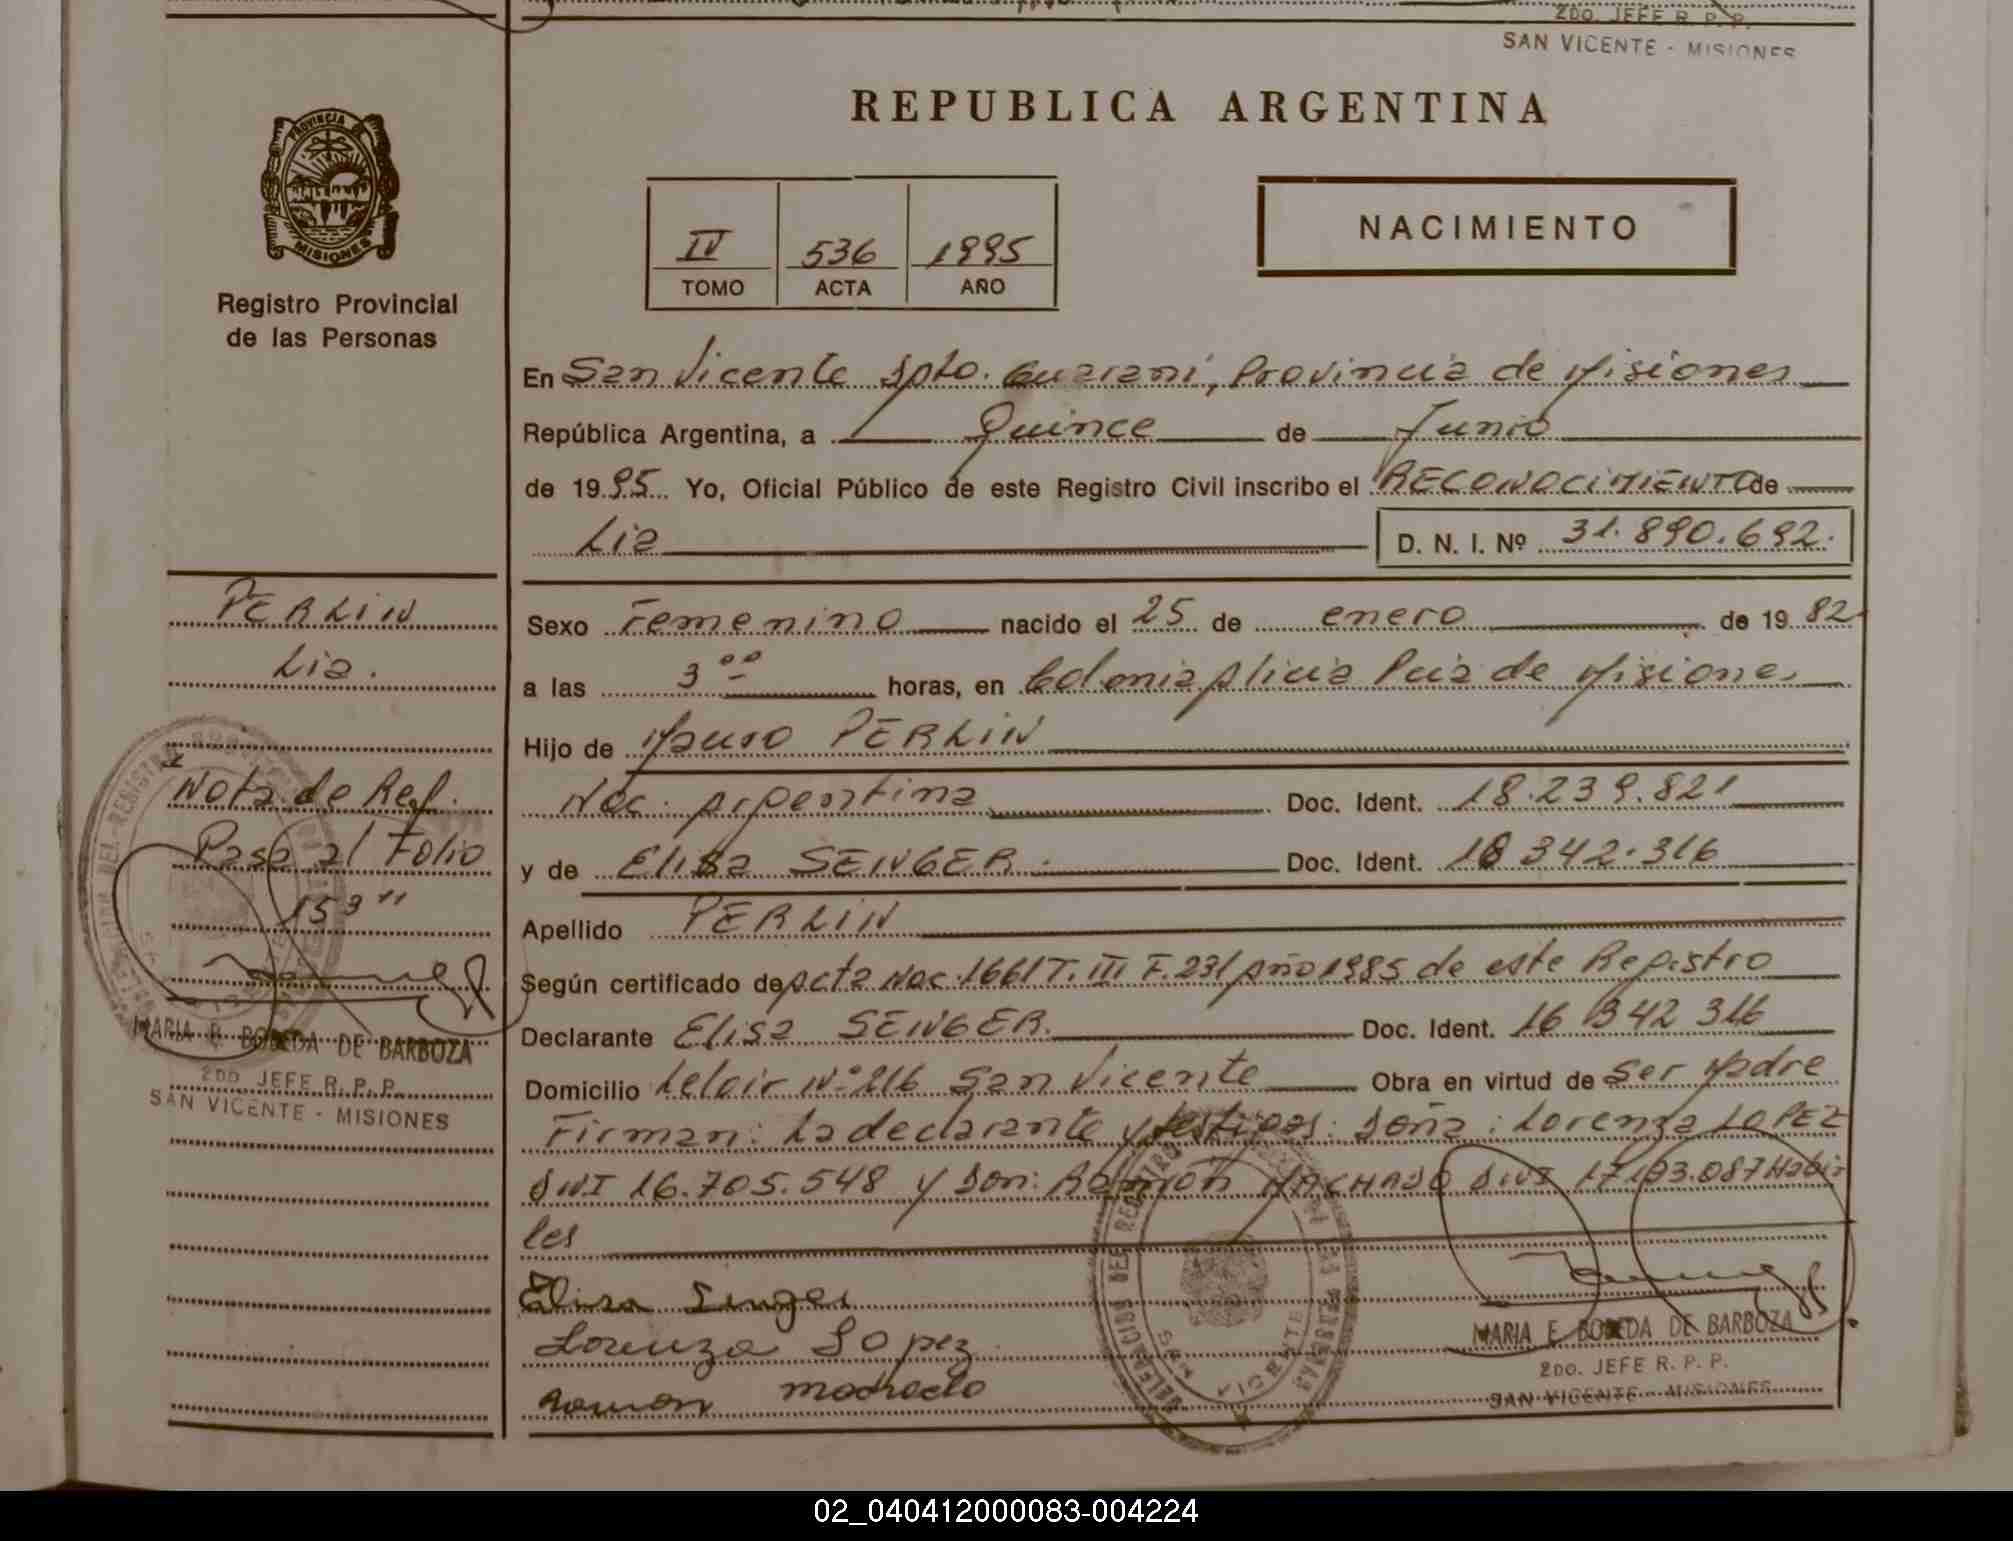 2DO. JEFE R. P. P.
SAN VICENTE - MISIONES
PROVINCIA DE
MISIONES
Registro Provincial
de las Personas
REPUBLICA ARGENTINA
IV 536 1995
TOMO ACTA AÑO
NACIMIENTO
En San Vicente Dpto. Guaraní, Provincia de Misiones
República Argentina, a Quince de Junio
de 1995 Yo, Oficial Público de este Registro Civil inscribo el RECONOCIMIENTO de
Lia D. N. I. Nº 31.890.692.
PERLIN
Lia.
Nota de Ref.
Pasa al Folio
153"
MARIA E. BOBEDA DE BARBOZA
2DO. JEFE R. P. P.
SAN VICENTE - MISIONES
Sexo Femenino nacido el 25 de enero de 1982
a las 3 ºº horas, en Colonia Alicia Pcia de Misiones
Hijo de Mauro PERLIN
Nac. Argentina Doc. Ident. 18.239.821
y de Elisa SENGER. Doc. Ident. 16 342.316
Apellido PERLIN
Según certificado de Acta Nac. 1661 T. III F. 231 Año 1985 de este Registro
Declarante Elisa SENGER. Doc. Ident. 16 342 316
Domicilio Leloir Nº 216 San Vicente Obra en virtud de Ser Madre
Firman: La declarante y testigos: Doña: Lorenza LOPEZ
DNI 16.705.548 y Don: Ramón MACHADO DNI 17.193.087 Habi
les
Elisa Senger
Lorenza Lopez
Ramon machado
DELEGACION DEL REGISTRO DE LAS PERSONAS
SAN VICENTE
MARIA E. BOBEDA DE BARBOZA
2DO. JEFE R. P. P.
SAN VICENTE - MISIONES
02_040412000083-004224